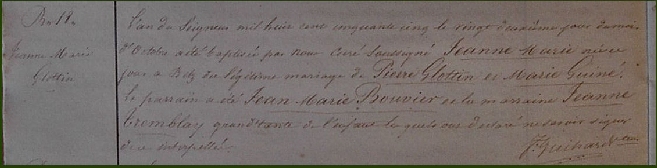 No 19
Jeanne Marie
Glottin
L'an du Seigneur mil huit cent cinquante cinq le vingt deuxième jour du mois
d'Octobre a été baptisée par nous Curé soussigné Jeanne Marie née ce
jour à du légitime mariage de Pierre Glottin et Marie Guiné.
Le parrain a été Jean Marie Bouvier et la marraine Jeanne
Tremblay grand'tante de l'enfant lesquels ont déclaré ne savoir signer
de ce interpellés.
F. Guihard